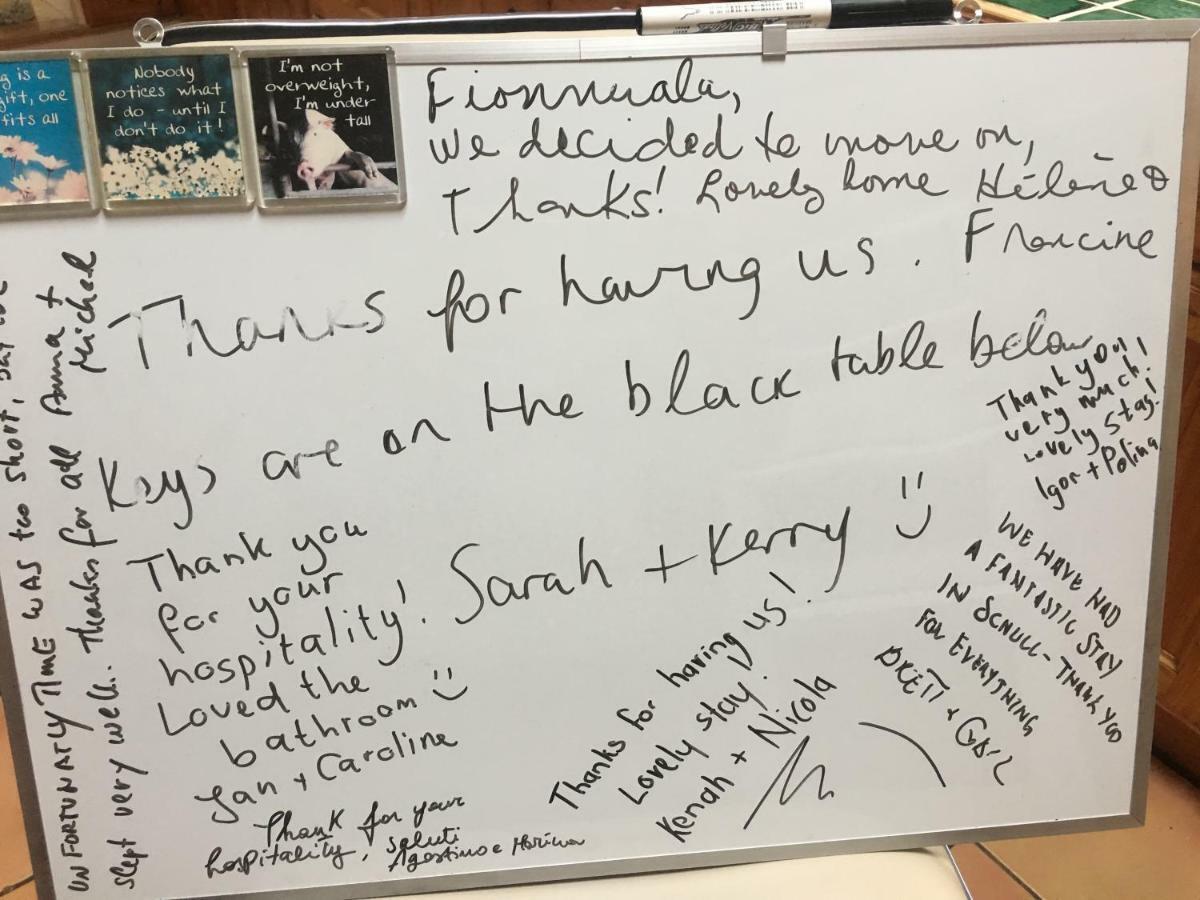 g is a
ift, one
fits all
Nobody
notices what
I do - until I
don't do it!
I'm not
overweight,
I'm under
tall
Fionnuala,
We decided to move on,
Thanks! Lovely home Hélène &
Francine
Thanks for having us.
Keys are on the black table below
Sarah + Kerry
Thank you
very much!
Lovely stay!
Igor + Polina
WE HAVE HAD
A FANTASTIC STAY
IN SCHULL - THANK YOU
FOR EVERYTHING
BRETT + GAIL
Thank you
for your
hospitality!
Loved the
bathroom
Jan + Caroline
Thanks for having us!
Lovely stay!
Kenah + Nicola
Thank for your
hospitality, saluti
Agostino e Marina
UNFORTUNATLY TIME WAS too short,
slept very well. Thanks for all Anna +
Michel